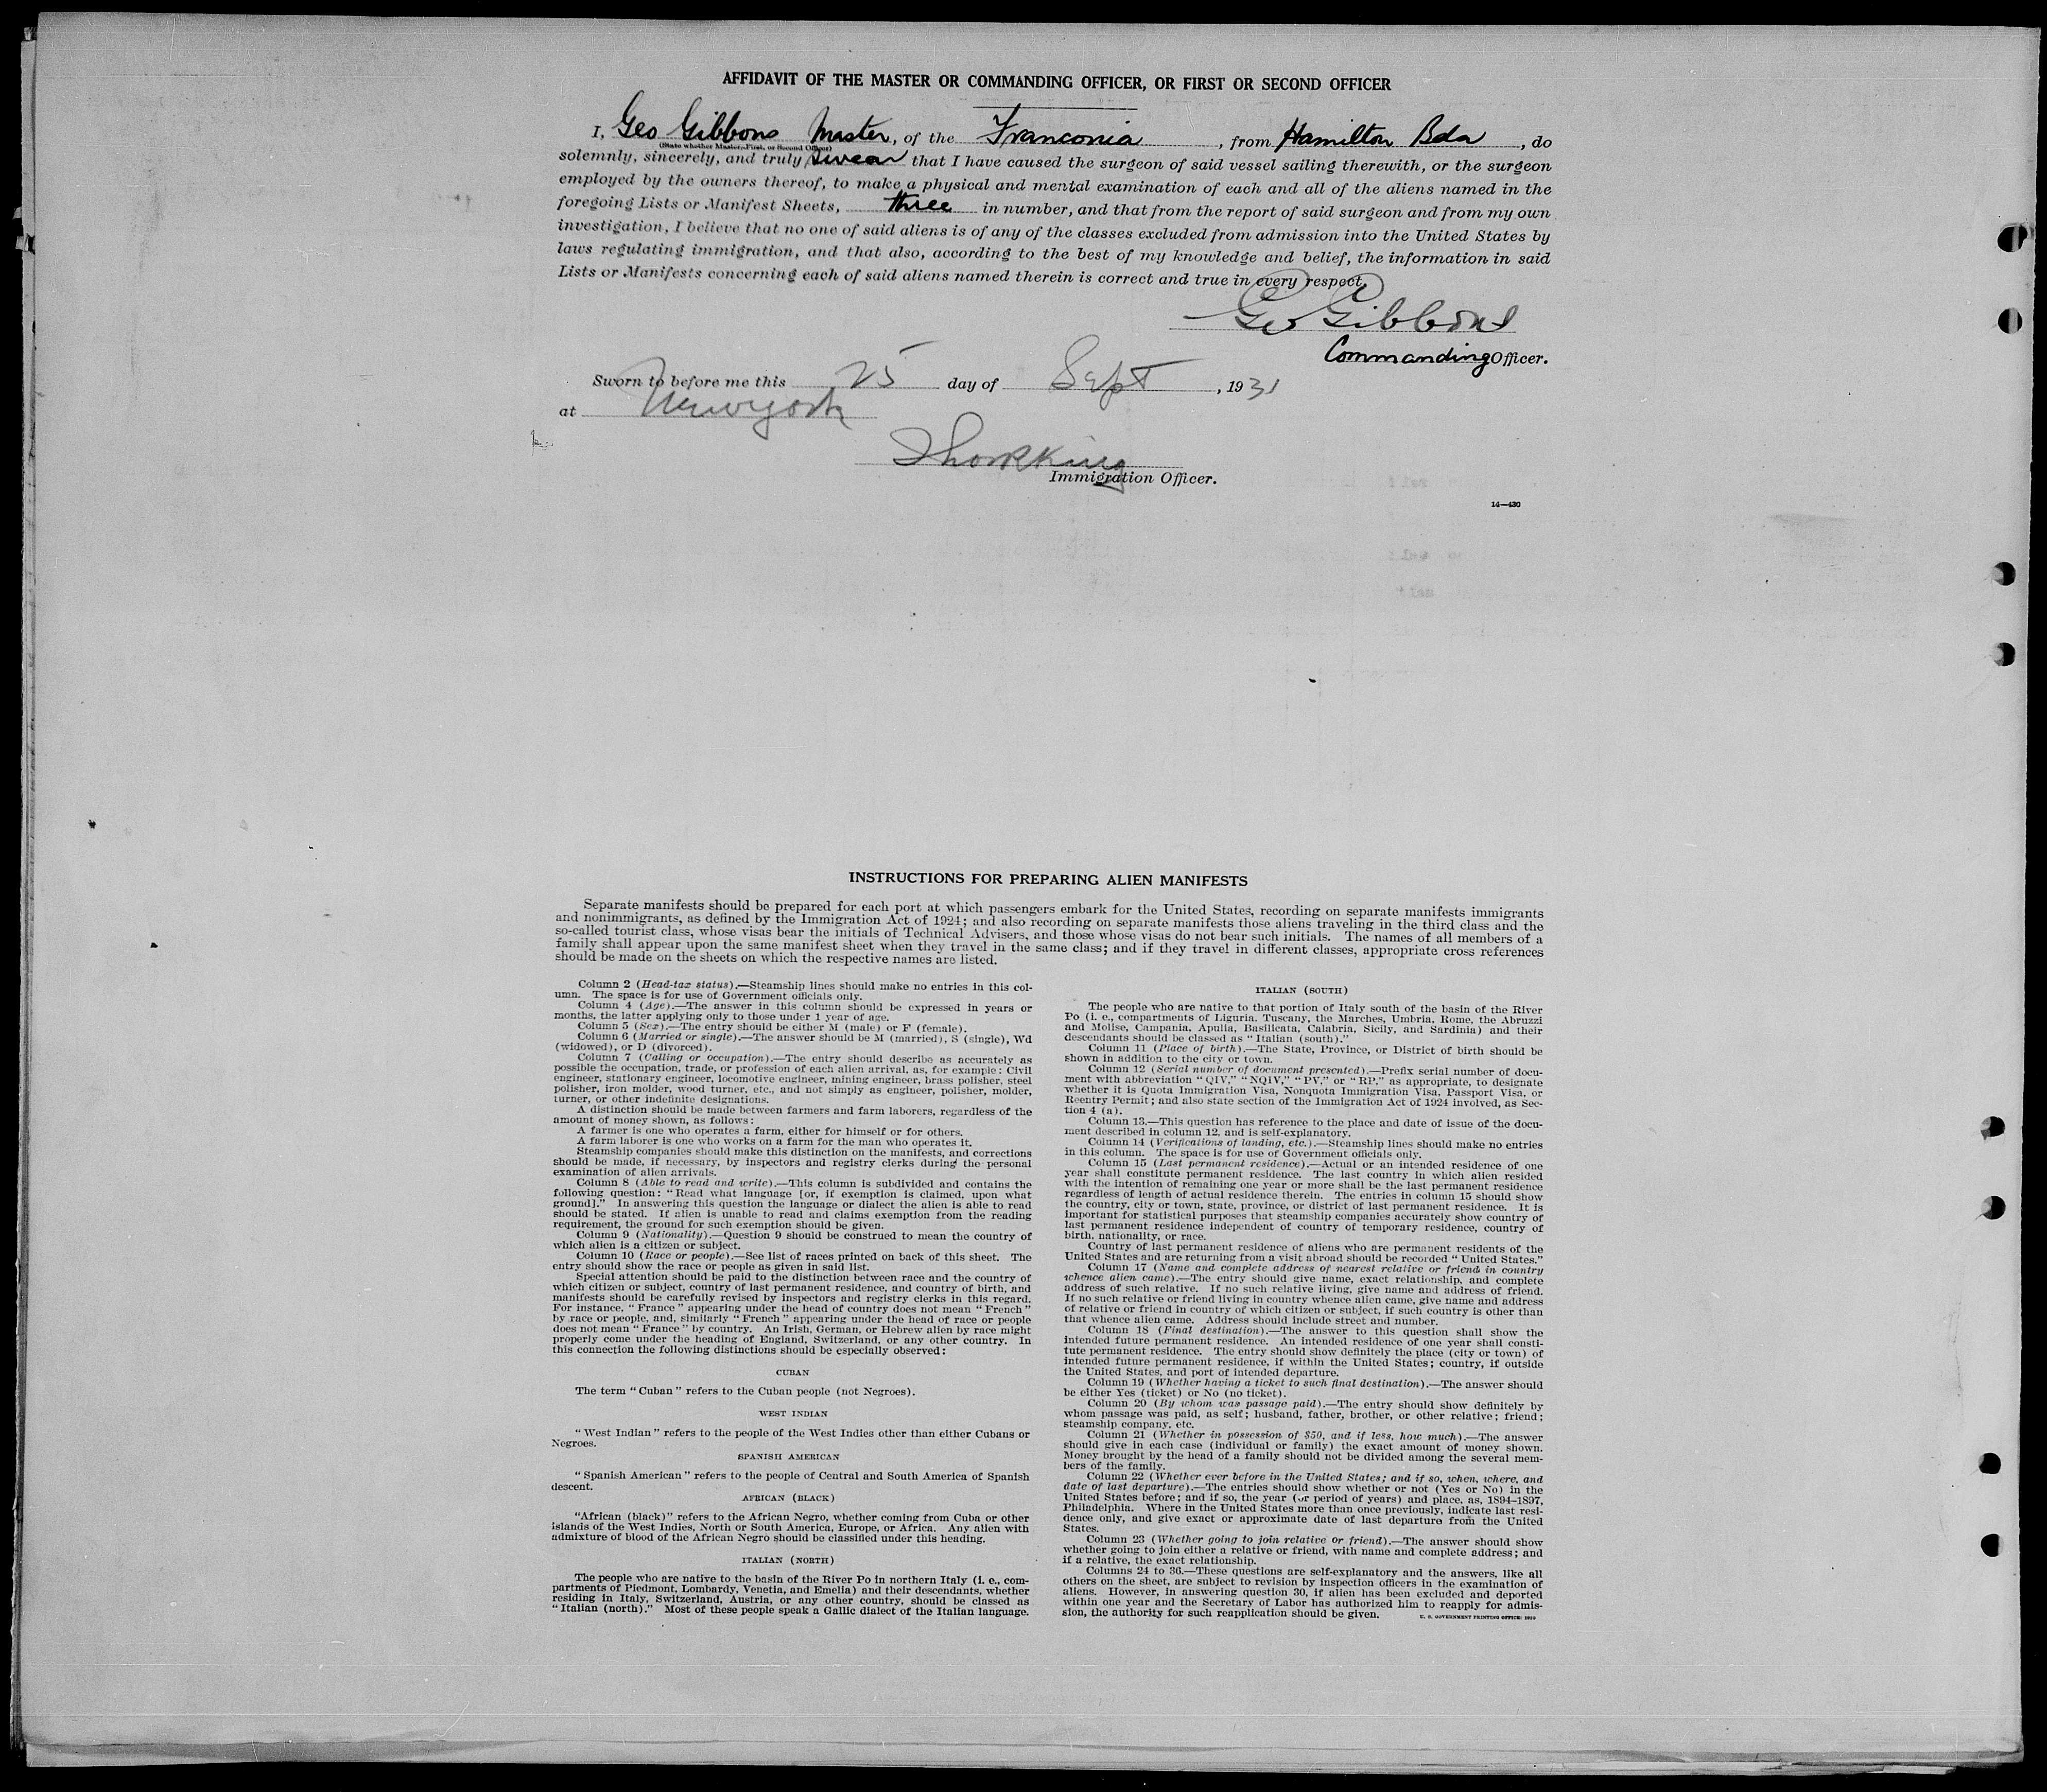 AFFIDAVIT OF THE MASTER OR COMMANDING OFFICER, OR FIRST OR SECOND OFFICER
I, Geo Gibbons Master, of the Franconia, from Hamilton Bda, do
(State whether Master, First, or Second Officer)
solemnly, sincerely, and truly swear that I have caused the surgeon of said vessel sailing therewith, or the surgeon
employed by the owners thereof, to make a physical and mental examination of each and all of the aliens named in the
foregoing Lists or Manifest Sheets, three in number, and that from the report of said surgeon and from my own
investigation, I believe that no one of said aliens is of any of the classes excluded from admission into the United States by
laws regulating immigration, and that also, according to the best of my knowledge and belief, the information in said
Lists or Manifests concerning each of said aliens named therein is correct and true in every respect.
Geo Gibbons
Commanding Officer.
Sworn to before me this 25 day of Sept, 1931
at New York
Immigration Officer.
14—430
INSTRUCTIONS FOR PREPARING ALIEN MANIFESTS
Separate manifests should be prepared for each port at which passengers embark for the United States, recording on separate manifests immigrants
and nonimmigrants, as defined by the Immigration Act of 1924; and also recording on separate manifests those aliens traveling in the third class and the
so-called tourist class, whose visas bear the initials of Technical Advisers, and those whose visas do not bear such initials. The names of all members of a
family shall appear upon the same manifest sheet when they travel in the same class; and if they travel in different classes, appropriate cross references
should be made on the sheets on which the respective names are listed.
Column 2 (Head-tax status).—Steamship lines should make no entries in this col-
umn. The space is for use of Government officials only.
Column 4 (Age).—The answer in this column should be expressed in years or
months, the latter applying only to those under 1 year of age.
Column 5 (Sex).—The entry should be either M (male) or F (female).
Column 6 (Married or single).—The answer should be M (married), S (single), Wd
(widowed), or D (divorced).
Column 7 (Calling or occupation).—The entry should describe as accurately as
possible the occupation, trade, or profession of each alien arrival, as, for example: Civil
engineer, stationary engineer, locomotive engineer, mining engineer, brass polisher, steel
polisher, iron molder, wood turner, etc., and not simply as engineer, polisher, molder,
turner, or other indefinite designations.
A distinction should be made between farmers and farm laborers, regardless of the
amount of money shown, as follows:
A farmer is one who operates a farm, either for himself or for others.
A farm laborer is one who works on a farm for the man who operates it.
Steamship companies should make this distinction on the manifests, and corrections
should be made, if necessary, by inspectors and registry clerks during the personal
examination of alien arrivals.
Column 8 (Able to read and write).—This column is subdivided and contains the
following question: "Read what language [or, if exemption is claimed, upon what
ground]." In answering this question the language or dialect the alien is able to read
should be stated. If alien is unable to read and claims exemption from the reading
requirement, the ground for such exemption should be given.
Column 9 (Nationality).—Question 9 should be construed to mean the country of
which alien is a citizen or subject.
Column 10 (Race or people).—See list of races printed on back of this sheet. The
entry should show the race or people as given in said list.
Special attention should be paid to the distinction between race and the country of
which citizen or subject, country of last permanent residence, and country of birth, and
manifests should be carefully revised by inspectors and registry clerks in this regard.
For instance, "France" appearing under the head of country does not mean "French"
by race or people, and, similarly "French" appearing under the head of race or people
does not mean "France" by country. An Irish, German, or Hebrew alien by race might
properly come under the heading of England, Switzerland, or any other country. In
this connection the following distinctions should be especially observed:
CUBAN
The term "Cuban" refers to the Cuban people (not Negroes).
WEST INDIAN
"West Indian" refers to the people of the West Indies other than either Cubans or
Negroes.
SPANISH AMERICAN
"Spanish American" refers to the people of Central and South America of Spanish
descent.
AFRICAN (BLACK)
"African (black)" refers to the African Negro, whether coming from Cuba or other
islands of the West Indies, North or South America, Europe, or Africa. Any alien with
admixture of blood of the African Negro should be classified under this heading.
ITALIAN (NORTH)
The people who are native to the basin of the River Po in northern Italy (i. e., com-
partments of Piedmont, Lombardy, Venetia, and Emelia) and their descendants, whether
residing in Italy, Switzerland, Austria, or any other country, should be classed as
"Italian (north)." Most of these people speak a Gallic dialect of the Italian language.
ITALIAN (SOUTH)
The people who are native to that portion of Italy south of the basin of the River
Po (i. e., compartments of Liguria, Tuscany, the Marches, Umbria, Rome, the Abruzzi
and Molise, Campania, Apulia, Basilicata, Calabria, Sicily, and Sardinia) and their
descendants should be classed as "Italian (south)."
Column 11 (Place of birth).—The State, Province, or District of birth should be
shown in addition to the city or town.
Column 12 (Serial number of document presented).—Prefix serial number of docu-
ment with abbreviation "QIV," "NQIV," "PV," or "RP," as appropriate, to designate
whether it is Quota Immigration Visa, Nonquota Immigration Visa, Passport Visa, or
Reentry Permit; and also state section of the Immigration Act of 1924 involved, as Sec-
tion 4 (a).
Column 13.—This question has reference to the place and date of issue of the docu-
ment described in column 12, and is self-explanatory.
Column 14 (Verifications of landing, etc.).—Steamship lines should make no entries
in this column. The space is for use of Government officials only.
Column 15 (Last permanent residence).—Actual or an intended residence of one
year shall constitute permanent residence. The last country in which alien resided
with the intention of remaining one year or more shall be the last permanent residence
regardless of length of actual residence therein. The entries in column 15 should show
the country, city or town, state, province, or district of last permanent residence. It is
important for statistical purposes that steamship companies accurately show country of
last permanent residence independent of country of temporary residence, country of
birth, nationality, or race.
Country of last permanent residence of aliens who are permanent residents of the
United States and are returning from a visit abroad should be recorded "United States."
Column 17 (Name and complete address of nearest relative or friend in country
whence alien came).—The entry should give name, exact relationship, and complete
address of such relative. If no such relative living, give name and address of friend.
If no such relative or friend living in country whence alien came, give name and address
of relative or friend in country of which citizen or subject, if such country is other than
that whence alien came. Address should include street and number.
Column 18 (Final destination).—The answer to this question shall show the
intended future permanent residence. An intended residence of one year shall consti-
tute permanent residence. The entry should show definitely the place (city or town) of
intended future permanent residence, if within the United States; country, if outside
the United States, and port of intended departure.
Column 19 (Whether having a ticket to such final destination).—The answer should
be either Yes (ticket) or No (no ticket).
Column 20 (By whom was passage paid).—The entry should show definitely by
whom passage was paid, as self; husband, father, brother, or other relative; friend;
steamship company, etc.
Column 21 (Whether in possession of $50, and if less, how much).—The answer
should give in each case (individual or family) the exact amount of money shown.
Money brought by the head of a family should not be divided among the several mem-
bers of the family.
Column 22 (Whether ever before in the United States; and if so, when, where, and
date of last departure).—The entries should show whether or not (Yes or No) in the
United States before; and if so, the year (or period of years) and place, as, 1894–1897,
Philadelphia. Where in the United States more than once previously, indicate last resi-
dence only, and give exact or approximate date of last departure from the United
States.
Column 23 (Whether going to join relative or friend).—The answer should show
whether going to join either a relative or friend, with name and complete address; and
if a relative, the exact relationship.
Columns 24 to 36.—These questions are self-explanatory and the answers, like all
others on the sheet, are subject to revision by inspection officers in the examination of
aliens. However, in answering question 30, if alien has been excluded and deported
within one year and the Secretary of Labor has authorized him to reapply for admis-
sion, the authority for such reapplication should be given.
U. S. GOVERNMENT PRINTING OFFICE: